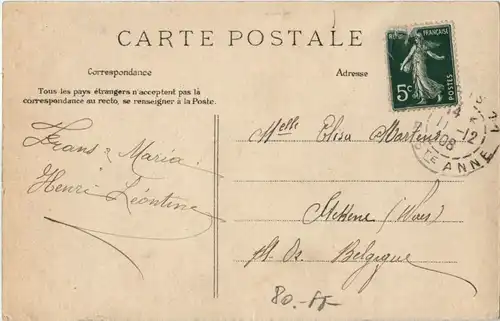 CARTE POSTALE
Correspondance
Adresse
Tous les pays étrangers n'acceptent pas la
correspondance au recto, se renseigner à la Poste.
Frans & Maria
Henri Léontine
Melle Elisa Martens
(Waes)
Belgique
80.-
RF
FRANÇAISE
POSTES
5c
14
11-12
08
STE ANNE